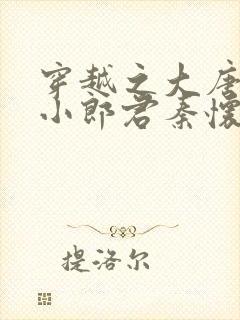 穿越之大唐
小郎君秦怀
提洛尔